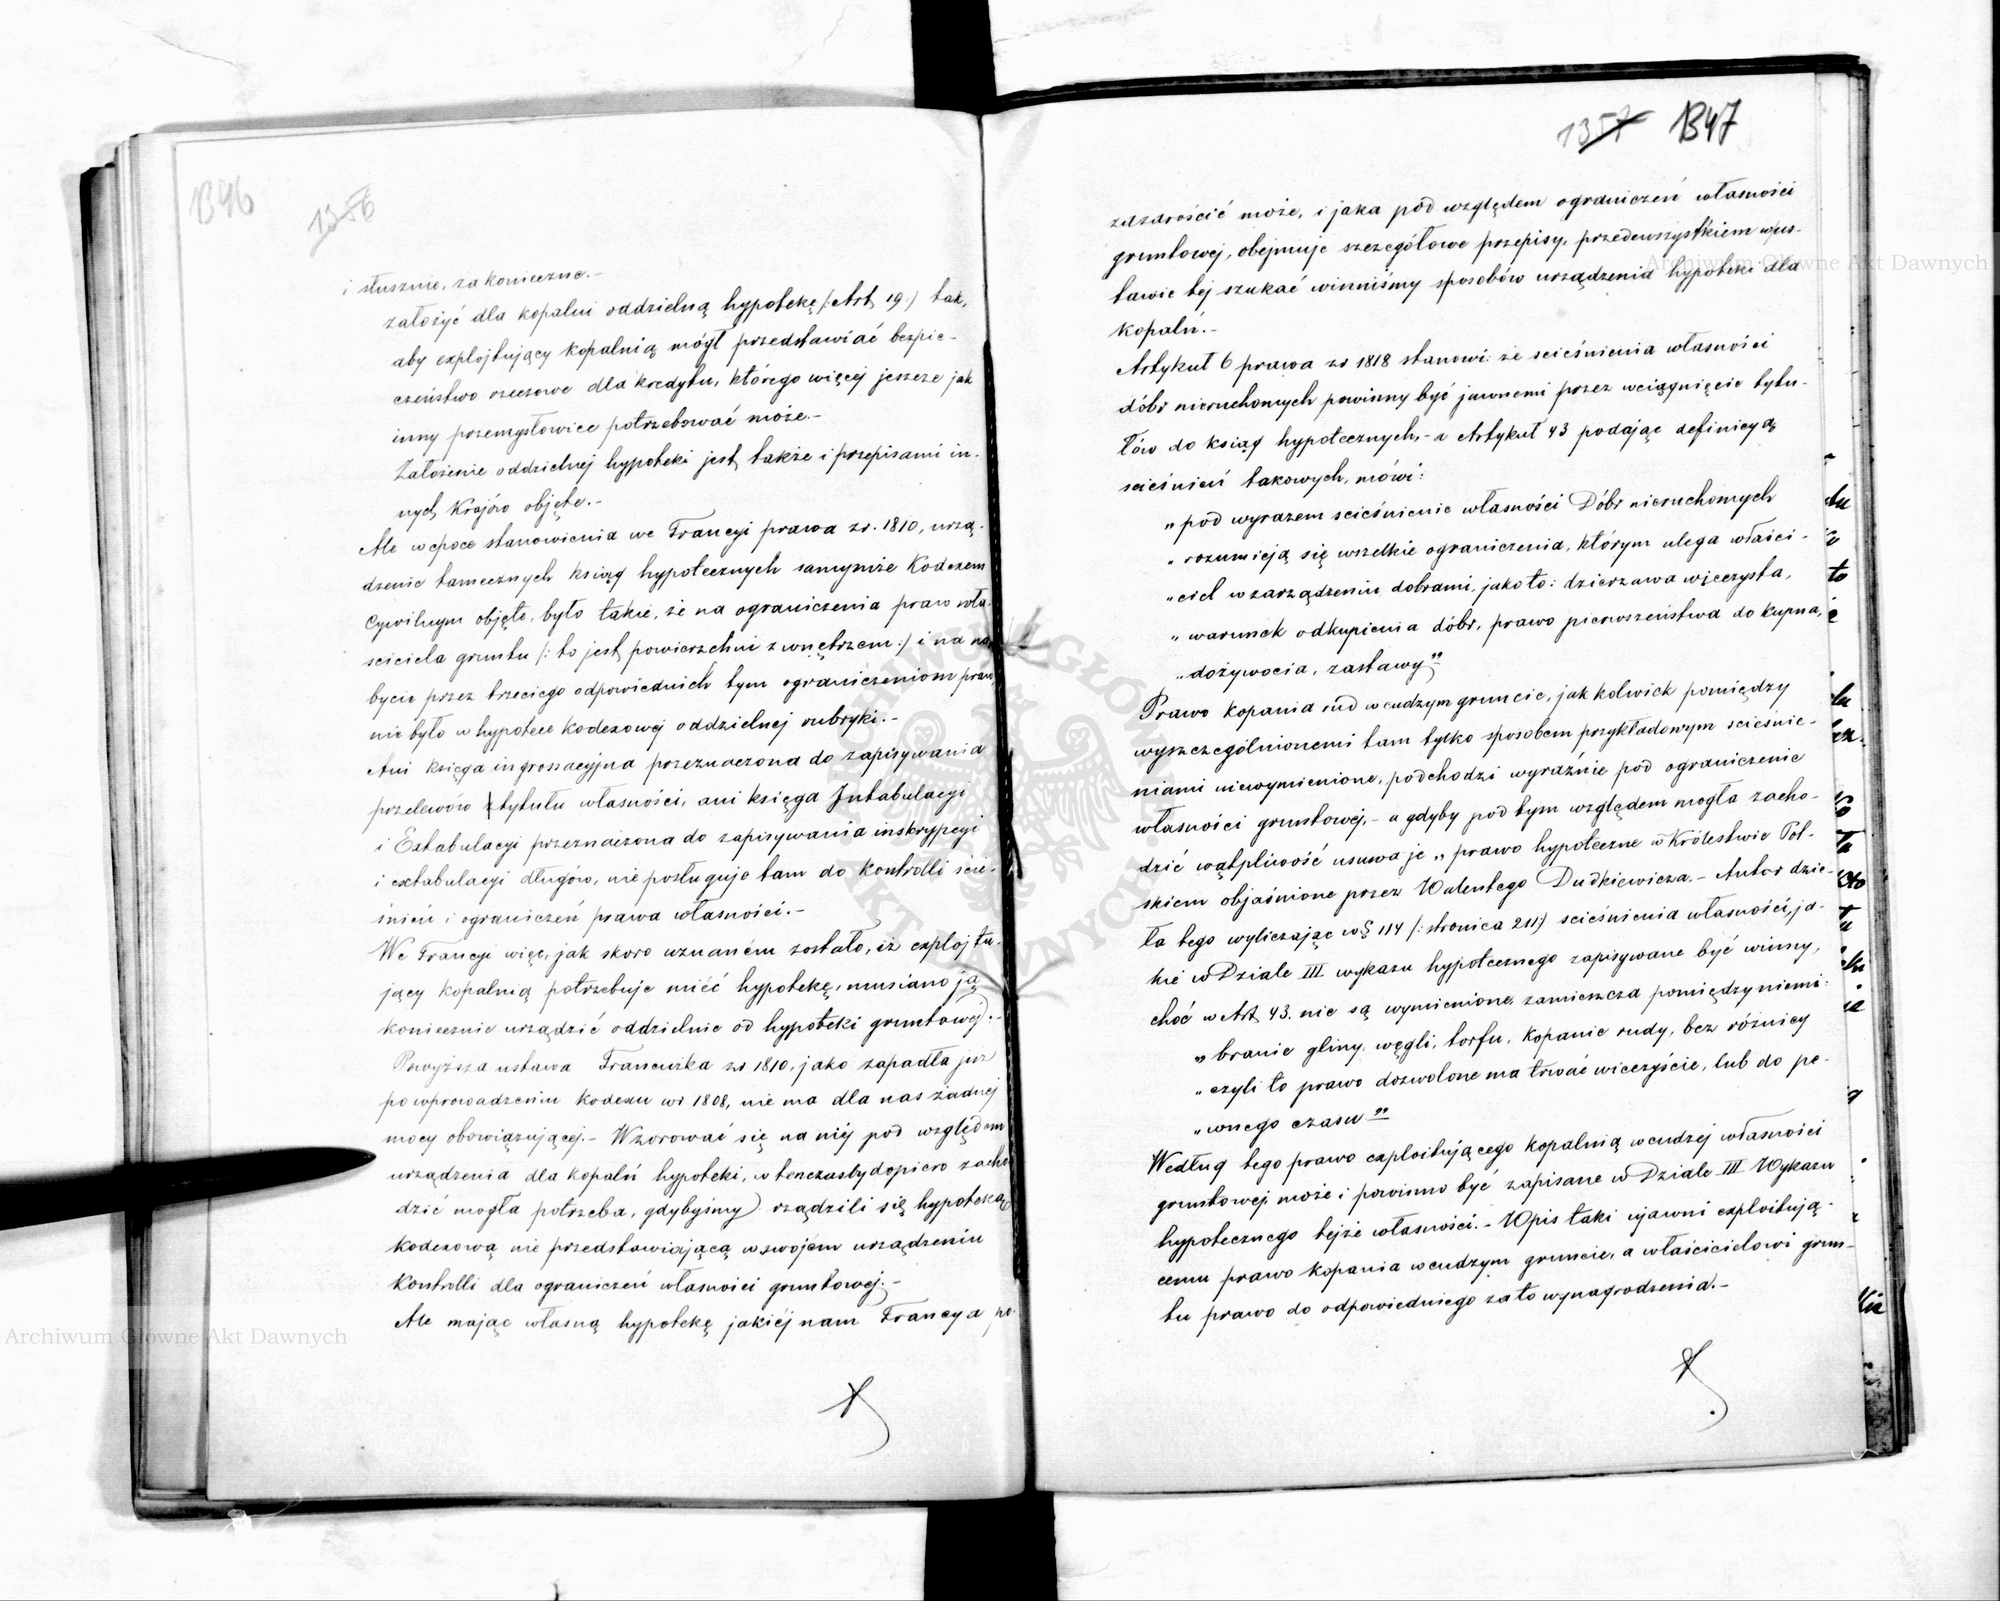 1346
1356
i słusznie, za konieczne.-
założyć dla kopalni oddzielną hypotekę /:Art. 19:/ tak,
aby exploitujący kopalnią mógł przedstawiać bezpie-
czeństwo rzeczowe dla kredytu, którego więcej jeszcze jak
inny przemysłowiec potrzebować może.-
Założenie oddzielnej hypoteki jest także i przepisami in-
nych Krajów objęte.-
Ale w epoce stanowienia we Francyi prawa z r. 1810, urzą-
dzenie tamecznych ksiąg hypotecznych samymże Kodexem
Cywilnym objęte, było takie, że na ograniczenia praw wła-
ściciela gruntu /: to jest powierzchni z wnętrzem:/ i na na-
bycie przez trzeciego odpowiednich tym ograniczeniom praw,
nie było w hypotece kodexowej oddzielnej rubryki.-
Ani księga ingrossacyjna przeznaczona do zapisywania
przelewów tytułu własności, ani księga Intabulacyi
i Extabulacyi przeznaczona do zapisywania inskrypcyi
i extabulacyi długów, nie posługuje tam do kontrolli ście-
śnień i ograniczeń prawa własności.-
We Francyi więc, jak skoro uznaném zostało, iż exploitu-
jący kopalnią potrzebuje mićć hypotekę, musiano ją
koniecznie urządzić oddzielnie od hypoteki gruntowej.-
Powyższa ustawa Francuzka z r 1810, jako zapadła już
po wprowadzeniu kodexu w r 1808, nie ma dla nas żadnej
mocy obowiązującej.- Wzorować się na niéj pod względem
urządzenia dla kopalń hypoteki, w tenczasby dopiero zacho
dzić mogła potrzeba, gdybyśmy rządzili się hypoteką
kodexową nie przedstawiającą w swojem urządzeniu
kontrolli dla ograniczeń własności gruntowej.-
Ale mając własną hypotekę jakiéj nam Francya po-
1357 1347
zazdrościć może, i jaka pod względem ograniczeń własności
gruntowej, obejmuje szczegółowe przepisy, przedewszystkiem w us-
tawie tej szukać winniśmy sposobów urządzenia hypoteki dla
kopalń.-
Artykuł 6 prawa z r 1818 stanowi: że ścieśnienia własności
dóbr nieruchomych powinny być jawnemi przez wciągnięcie tytu-
łów do ksiąg hypotecznych,- a Artykuł 43 podając definicyą
ścieśnień takowych, mówi:
„pod wyrazem ścieśnienie własności Dóbr nieruchomych
„rozumieją się wszelkie ograniczenia, którym ulega właści-
„ciel w zarządzeniu dobrami, jako to: dzierzawa wieczysta,
„warunek odkupienia dóbr, prawo pierwszeństwa do kupna,
„dożywocia, zastawy”
Prawo kopania rud w cudzym gruncie, jakkolwiek pomiędzy
wyszczególnionemi tam tylko sposobem przykładowym ścieśnie-
niami niewymienione, podchodzi wyraźnie pod ograniczenie
własności gruntowej,- a gdyby pod tym względem mogła zacho-
dzić wątpliwość usuwa je „prawo hypoteczne w Królestwie Pol-
skiem objaśnione przez Walentego Dudkiewicza.- Autor dzie-
ła tego wyliczając w § 114 /: stronica 211:/ ścieśnienia własności, ja-
kie w Dziale III. wykazu hypotecznego zapisywane być winny,
choć w Art. 43. nie są wymienione, zamieszcza pomiędzy niemi:
„branie gliny, węgli, torfu, kopanie rudy, bez różnicy
„czyli to prawo dozwolone ma trwać wieczyście, lub do pe-
„wnego czasu”
Według tego prawo exploitującego kopalnią w cudzej własności
gruntowej może i powinno być zapisane w Dziale III Wykazu
hypotecznego tejże własności.- Wpis taki ujawni exploitują-
cemu prawo kopania w cudzym gruncie, a właścicielowi grun-
tu prawo do odpowiedniego za to wynagrodzenia.-
Archiwum Główne Akt Dawnych
Archiwum Główne Akt Dawnych